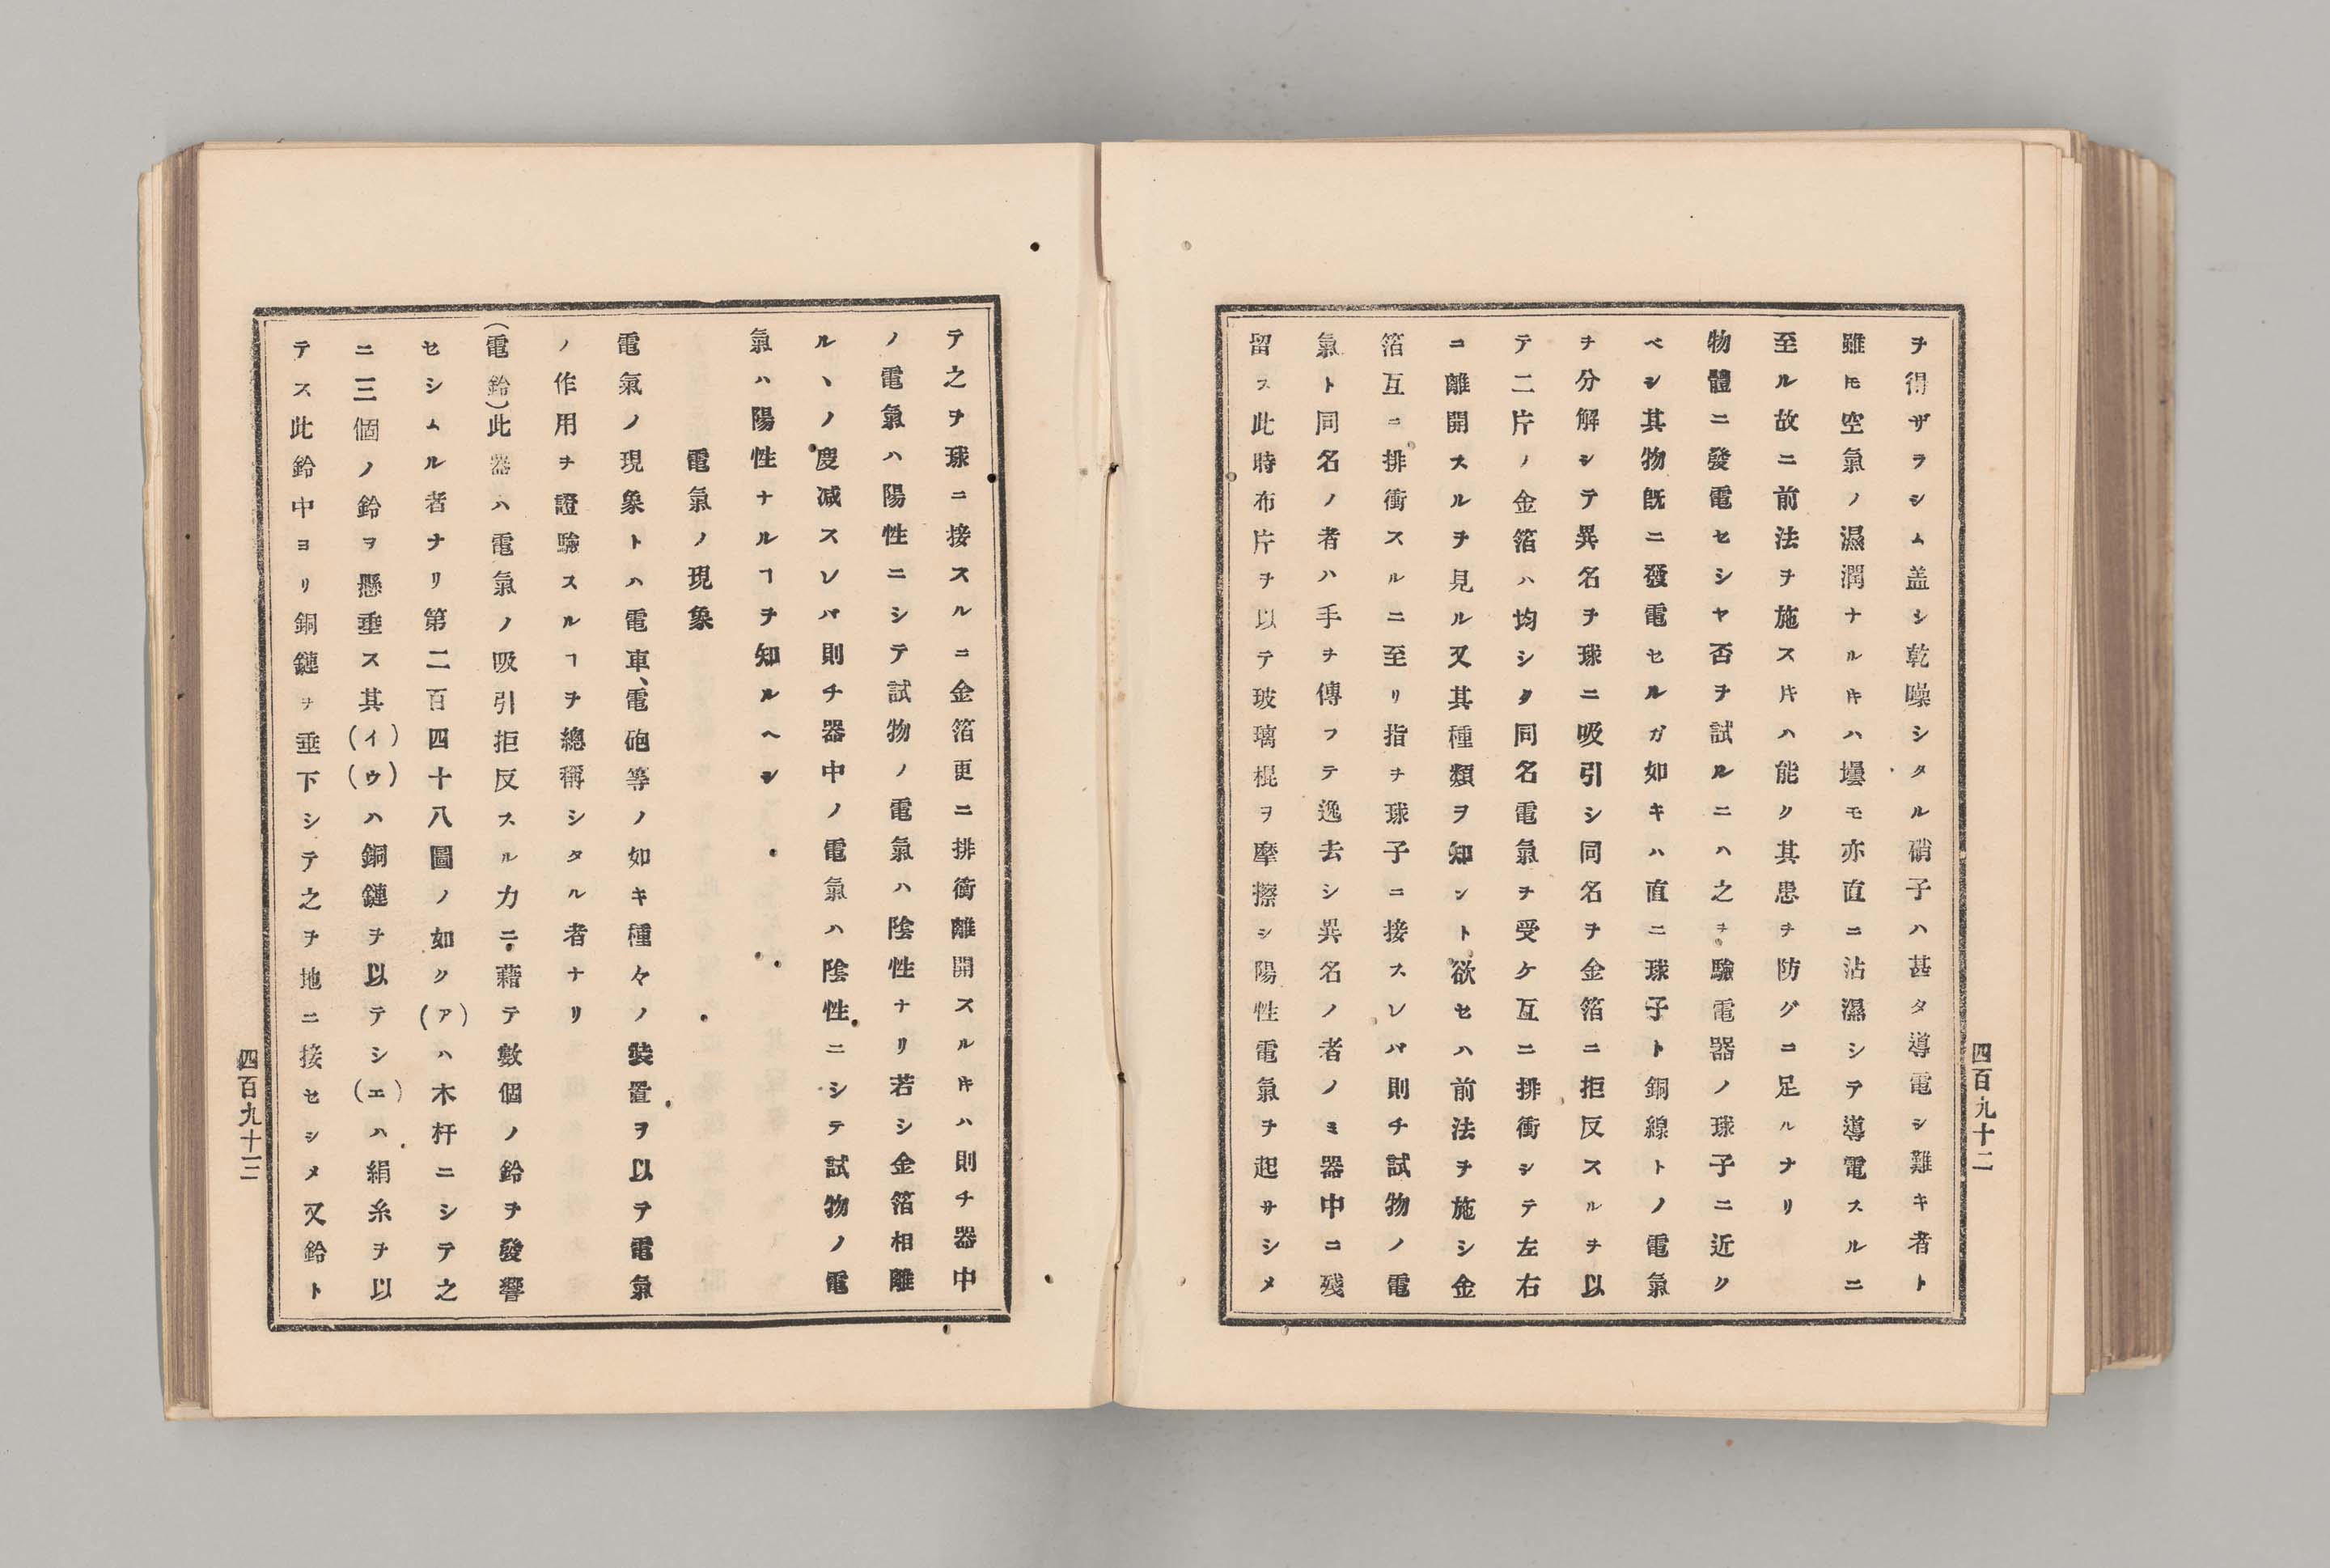 ヲ得ザラシム盖シ乾噪シタル硝子ハ甚タ導電シ難キ者ト
雖𪜈空氣ノ濕潤ナルキハ壜モ亦直ニ沾濕シテ導電スルニ
至ル故ニ前法ヲ施スキハ能ク其患ヲ防グニ足ルナリ
物體ニ發電セシヤ否ヲ試ルニハ之ヲ驗電器ノ球子ニ近ク
ベシ其物既ニ發電セルガ如キハ直ニ球子ト銅線トノ電氣
ヲ分解シテ異名ヲ球ニ吸引シ同名ヲ金箔ニ拒反スルヲ以
テ二片ノ金箔ハ均シク同名電氣ヲ受ケ互ニ排衝シテ左右
ニ離開スルヲ見ル又其種類ヲ知ント欲セハ前法ヲ施シ金
箔互ニ排衝スルニ至リ指ヲ球子ニ接スレバ則チ試物ノ電
氣ト同名ノ者ハ手ヲ傳フテ逸去シ異名ノ者ノミ器中ニ殘
留ス此時布片ヲ以テ玻璃棍ヲ摩擦シ陽性電氣ヲ起サシメ
四百九十二
テ之ヲ球ニ接スルニ金箔更ニ排衝離開スルキハ則チ器中
ノ電氣ハ陽性ニシテ試物ノ電氣ハ陰性ナリ若シ金箔相離
ルヽノ度减スレバ則チ器中ノ電氣ハ陰性ニシテ試物ノ電
氣ハ陽性ナルヿヲ知ルヘシ
電氣ノ現象
電氣ノ現象トハ電車、電砲等ノ如キ種々ノ裝置ヲ以テ電氣
ノ作用ヲ證驗スルヿヲ總稱シタル者ナリ
(電鈴)此器ハ電氣ノ吸引拒反スル力ニ藉テ數個ノ鈴ヲ發響
セシムル者ナリ第二百四十八圖ノ如ク(ア)ハ木杆ニシテ之
ニ三個ノ鈴ヲ懸垂ス其(イ)(ウ)ハ銅鏈ヲ以テシ(エ)ハ絹糸ヲ以
テス此鈴中ヨリ銅鏈ヲ垂下シテ之ヲ地ニ接セシメ又鈴ト
四百九十三